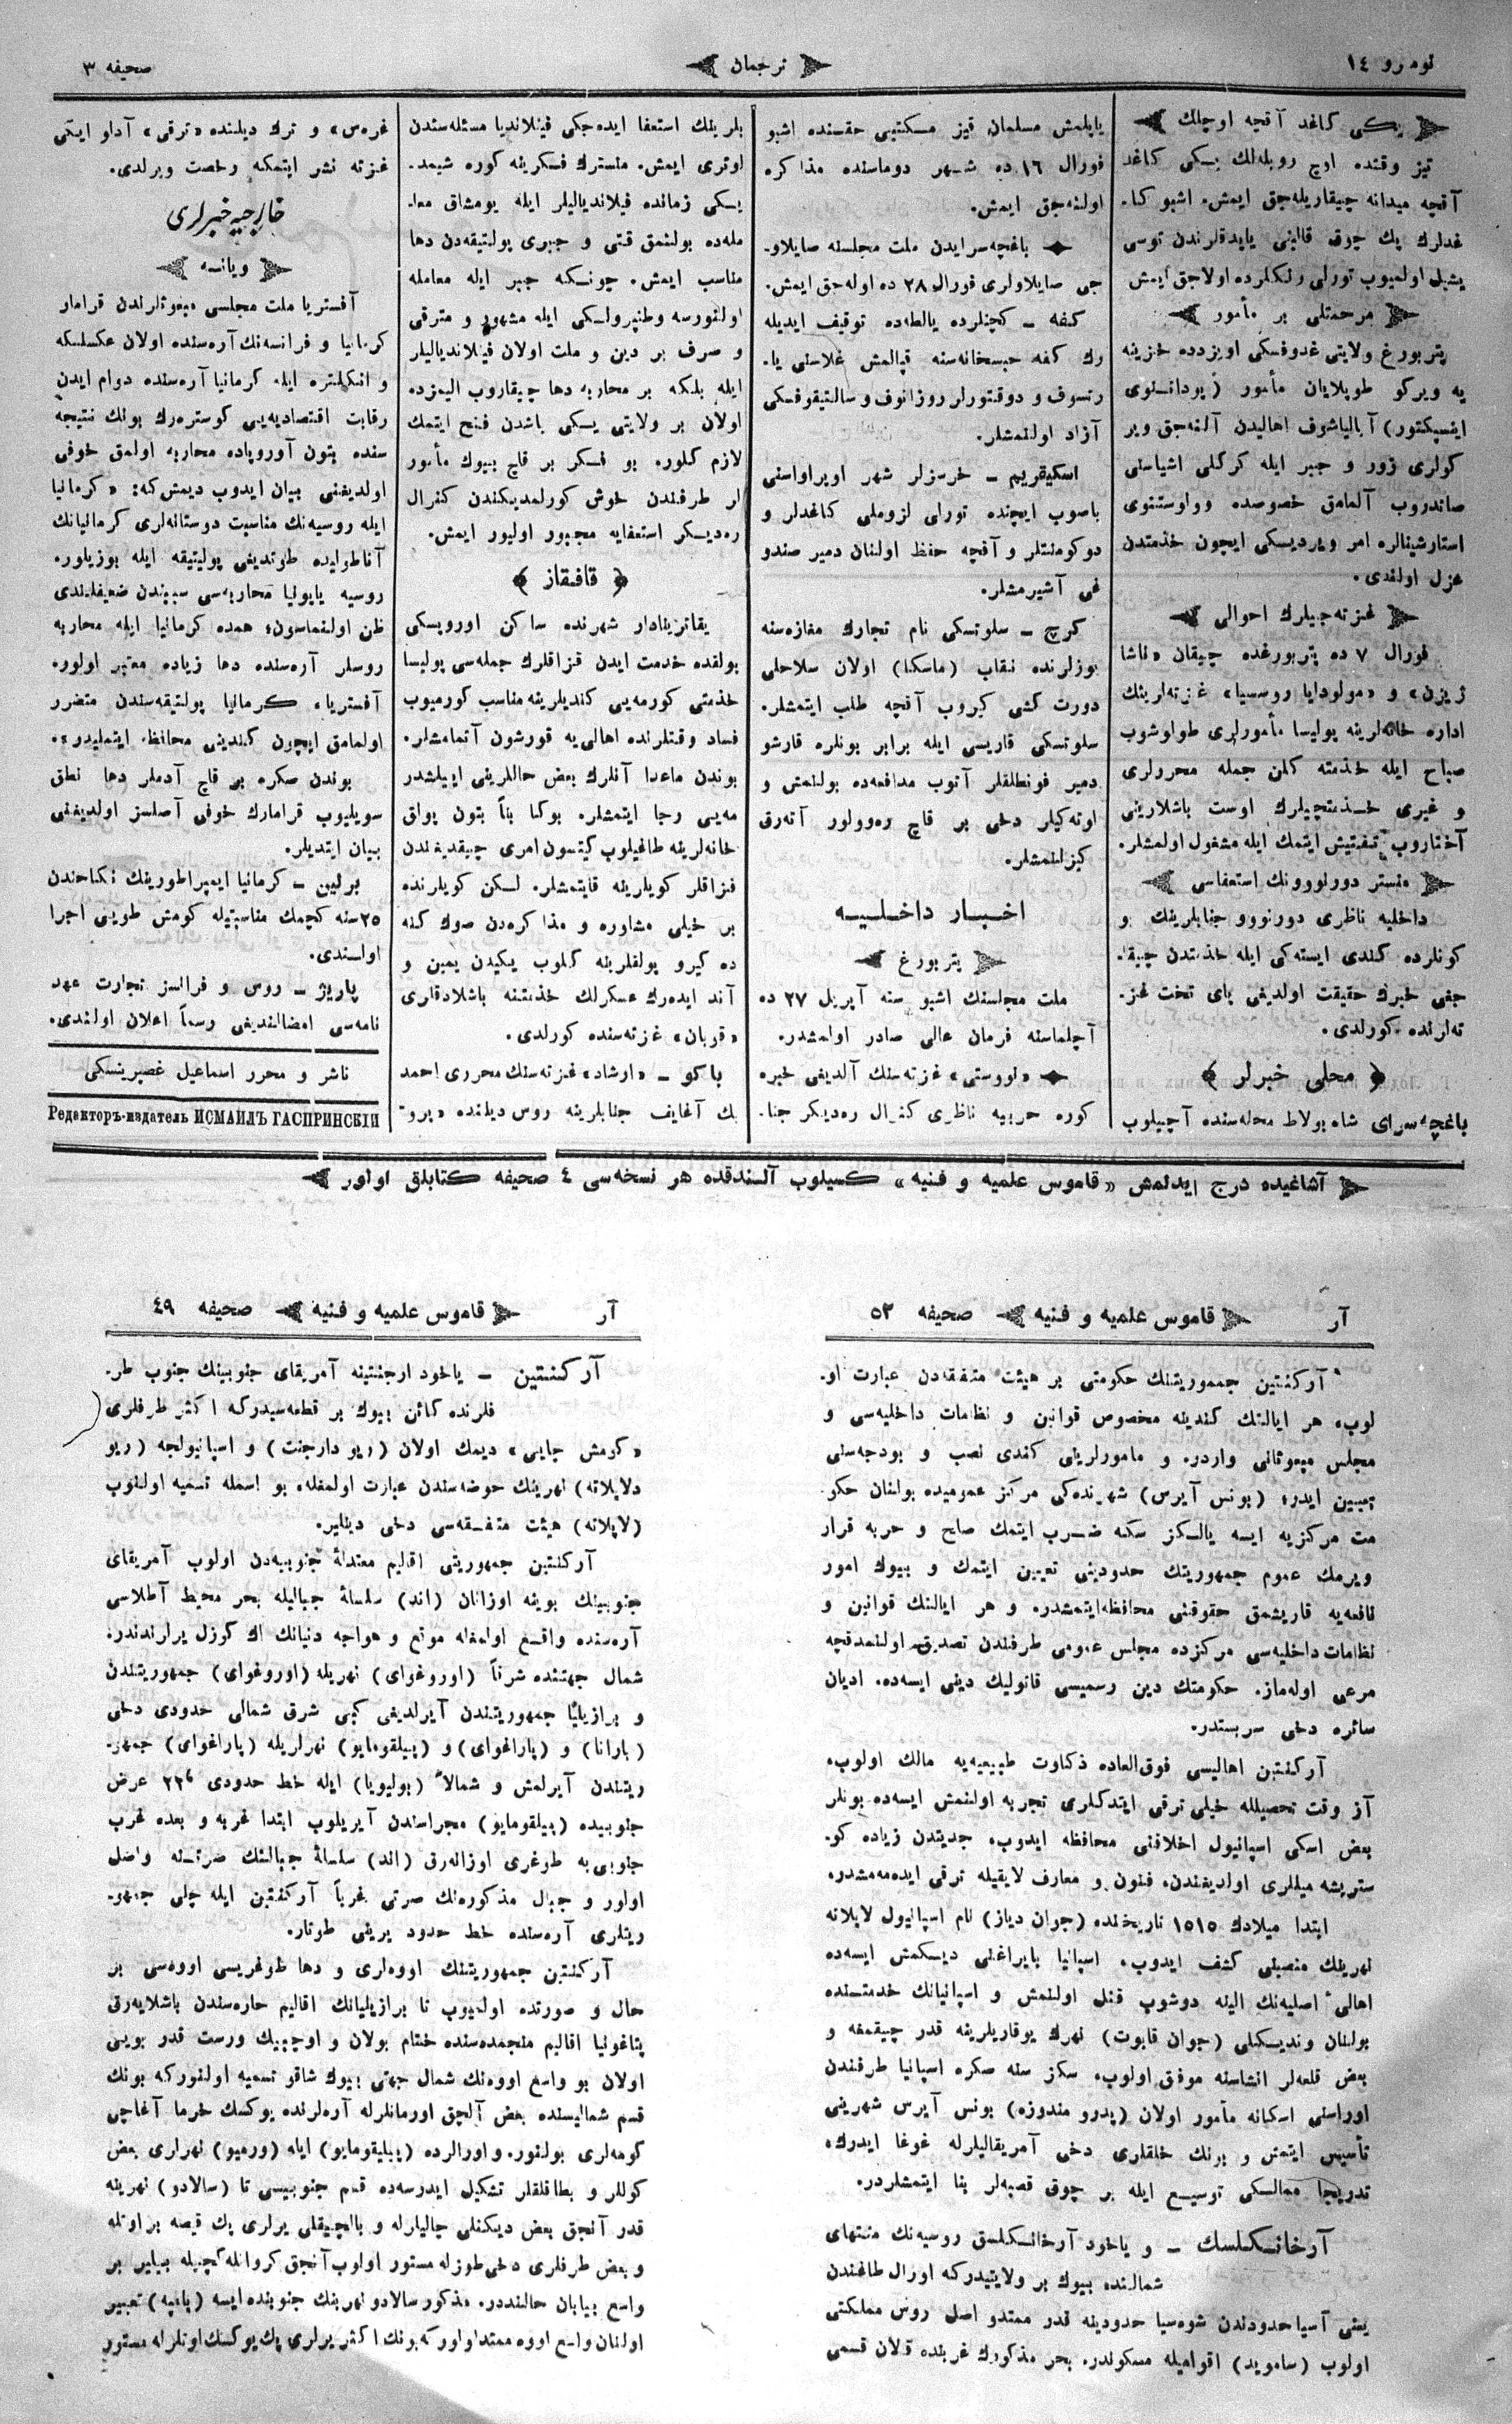 نومرو ١٤
ترجمان
صحیفه ٣
یڭی کاغد آقچه اوچلك
تیز وقتده اوچ روبله‌لك یڭی کاغد
آقچه میدانه چیقاریله‌جق ایمش. اشبو کا-
غدلرك پك چوق قالپنی یاپدقلرندن توسی
یشیل اولمیوب تورلی رنکلرده اولاجق ایمش
مرحمتلی بر مأمور
پتربورغ ولایتی غدوفسکی اویزدده خزینه
یه ویرکو طوپلایان مأمور (پوداتنوی
اینسپکتور) آبالیاشوف اهالیدن آلنه‌جق ویر
کولری زور و جبر ایله کرکلی اشیاسنی
صاندروب آلمامق خصوصده وولوستنوی
استارشینالره امر ویردیکی ایچون خذمتدن
عزل اولندی.
غزته‌جیلرك احوالی
فورال ٧ ده پتربورغده چیقان «ناشا
ژیزن» و «مولودایا روسسیا» غزته‌لرینك
اداره خانه‌لرینه پولیسا مأمورلری طولوشوب
صباح ایله خذمته کلن جمله محررلری
و غیری خذمتچیلرك اوست باشلارینی
آختاروب تفتیش ایتمك ایله مشغول اولمشلر.
منستر دورنوونك استعفاسی
داخلیه ناظری دورنوو جنابلرینك بو
کونلرده کندی ایسته‌کی ایله خذمتدن چیقا-
جغی خبرك حقیقت اولدیغی پای تخت غز-
ته‌لرنده کورلدی.
محلی خبرلر
باغچه‌سرای شاه بولاط محله‌سنده آچیلوب
یاپلمش مسلمان قیز مسکتبی حقسنده اشبو
فورال ١٦ ده شهر دوماسنده مذاکره
اولنه‌جق ایمش.
باغچه‌سرایدن ملت مجلسنه صایلاو-
جی صایلاولری فورال ٢٨ ده اوله‌جق ایمش.
کفه – کچنلرده یالطه‌ده توقیف ایدیله
رك کفه حبسخانه‌سنه قپالمش غلاسنی یا-
رتسوف و دوقتورلر روزانوف و سالتیقوفسکی
آزاد اولنمشلر.
اسکیقریم – خرسزلر شهر اوپراواسنی
باصوب ایچنده تورلی لزوملی کاغدلر و
دوکومنتلر و آقچه حفظ اولنان دمیر صندو
غی آشیرمشلر.
کرچ – سلوتسکی نام تجارك مغازه‌سنه
یوزلرنده نقاب (ماسکا) اولان سلاحلی
دورت کشی کیروب آقچه طلب ایتمشلر.
سلوتسکی قاریسی ایله برابر بونلره قارشو
دمیر فونطلقلر آتوب مدافعه‌ده بولنمش و
اوته‌کیلر دخی بر قاچ رەوولور آته‌رق
کیزلنمشلر.
اخبار داخلیه
پتربورغ
ملت مجلسنك اشبو سنه آپریل ٢٧ ده
آچلماسنه فرمان عالی صادر اولمشدر.
«نووستی» غزته‌سنك آلدیغی خبره
کوره حربیه ناظری کنرال رەدیکر جنا-
بلرینك استعفا ایده‌جکی فینلاندیا مسئله‌سندن
اوتری ایمش. منسترك فسکرینه کوره شیمد-
یکی زمانده فیلاندیالیلر ایله یومشاق معا-
مله‌ده بولنمق قتی و جبری پولتیقه‌دن دها
مناسب ایمش. چونکه جبر ایله معامله
اولنورسه وطنپرولکی ایله مشهور و مترقی
و صرف بر دین و ملت اولان فینلاندیالیلر
ایله بلکه بر محاربه دها چیقاروب الیمزده
اولان بر ولایتی یڭی باشدن فتح ایتمك
لازم کلور. بو فکر بر قاچ بیوك مأمور
لر طرفندن خوش کورلمدیکندن کنرال
رەدیکر استعفایه مجبور اولیور ایمش.
قافقاز
یقاترینادار شهرنده ساکن اوروپسکی
پولقده خدمت ایدن قزاقلرك جمله‌سی پولیسا
خذمتی کورمه‌یی کندیلرینه مناسب کورمیوب
فساد وقتلرنده اهالی‌یه قورشون آتمامشلر.
بوندن ماعدا آنلرك بعض حاللرینی ایپلشدر
مه‌یی رجا ایتمشلر. بوکا بناً بتون پولق
خانه‌لرینه طاغیلوب کیتسون امری چیقدیغندن
قزاقلر کویلرینه قایتمشلر. لسکن کویلرنده
بر خیلی مشاوره و مذاکره‌دن صوك کنه
ده کیرو پولقلرینه کلوب یڭیدن یمین و
آند ایده‌رك عسکرلك خذمتنه باشلادقلری
«قربان» غزته‌سنده کورلدی.
باکو – «ارشاد» غزته‌سنك محرری احمد
بك آغایف جنابلرینه روس دیلنده «پرو-
غره‌س» و ترك دیلنده «ترقی» آدلو ایکی
غزته نشر ایتمکه رخصت ویرلدی.
خارجیه خبرلری
ویانه
آفستریا ملت مجلسی مبعوثلرندن قرامار
کرمانیا و فرانسه‌نك آره‌سنده اولان عکسلسکه
و انکلتره ایله کرمانیا آره‌سنده دوام ایدن
رقابت اقتصادیه‌یی کوستره‌رك بونك نتیجه
سنده بتون آوروپاده محاربه اولمق خوفی
اولدیغنی بیان ایدوب دیمش‌که: «کرمانیا
ایله روسیه‌نك مناسبت دوستانه‌لری کرمانیانك
آناطولیده طوتدیغی پولیتیقه ایله بوزیلور.
روسیه یاپونیا محاربه‌سی سببندن ضعیفلندی
ظن اولنماسون؛ همده کرمانیا ایله محاربه
روسلر آره‌سنده دها زیاده معتبر اولور.
آفستریا، کرمانیا پولتیقه‌سندن متضرر
اولمامق ایچون کندینی محافظه ایتملیدر».
بوندن صکره بر قاچ آدملر دها نطق
سویلیوب قرامارك خوفی آصلسز اولدیغنی
بیان ایتدیلر.
برلین – کرمانیا ایمپراطورینك نکاحندن
٢٥ سنه کچمك مناسبتیله کومش طویی اجرا
اولندی.
پاریژ – روس و فرانسز تجارت عهد
نامه‌سی امضالندیغی رسماً اعلان اولندی.
ناشر و محرر اسماعیل غصپرینسکی
Редакторъ-издатель ИСМАИЛЪ ГАСПРИНСКІЙ
آشاغیده درج ایدلمش «قاموس علمیه و فنیه» کسیلوب آلندقده هر نسخه‌سی ٤ صحیفه کتابلق اولور
آر
قاموس علمیه و فنیه
صحیفه ٥٢
آرکنتین جمهوریتنك حکومتی بر هیئت متفقه‌دن عبارت او-
لوب، هر ایالتك کندینه مخصوص قوانین و نظامات داخلیه‌سی و
مجلس مبعوثانی واردر. و مامورلرینی کندی نصب و بودجه‌سنی
تعیین ایدر؛ (بونس آیرس) شهرنده‌کی مرکز عمومیده بولنان حکو
مت مرکزیه ایسه یالکز سکه ضرب ایتمك صلح و حربه قرار
ویرمك عموم جمهوریتك حدودینی تعیین ایتمك و بیوك امور
نافعه‌یه قاریشمق حقوقنی محافظه‌ایتمشدر. و هر ایالتك قوانین و
نظامات داخلیه‌سی مرکزده مجلس عمومی طرفندن تصدیق اولنمدقچه
مرعی اوله‌ماز. حکومتك دین رسمیسی قاتولیك دینی ایسه‌ده، ادیان
سائره دخی سربستدر.
آرکنتین اهالیسی فوق‌العاده ذکاوت طبیعیه‌یه مالك اولوب،
آز وقت تحصیلله خیلی ترقی ایتدکلری تجربه اولنمش ایسه‌ده بونلر
بعض اسکی اسپانیول اخلاقنی محافظه ایدوب، جدیتدن زیاده کو-
ستریشه میللری اولدیغندن، فنون و معارف لایقیله ترقی ایده‌مه‌مشدر.
ابتدا میلادك ١٥١٥ تاریخنده (جوان دیاز) نام اسپانیول لاپلاته
نهرینك منصبنی کشف ایدوب، اسپانیا بایراغنی دیکمش ایسه‌ده
اهالیٔ اصلیه‌نك الینه دوشوب قتل اولنمش و اسپانیانك خدمتنده
بولنان وندیکلی (جوان قابوت) نهرك یوقاریلرینه قدر چیقمغه و
بعض قلعه‌لر انشاسنه موفق اولوب، سکز سنه صکره اسپانیا طرفندن
اوراسنی اسکانه مأمور اولان (پدرو مندوزه) بونس آیرس شهرینی
تأسیس ایتمش و بونك خلقلری دخی آمریقالیلرله غوغا ایدرك،
تدریجا ممالکی توسیع ایله بر چوق قصبه‌لر بنا ایتمشلردر.
آرخانکلسك – و یاخود آرخانکلسق روسیه‌نك منتهای
شمالنده بیوك بر ولایتیدرکه اورال طاغندن
یعنی آسیا حدودندن شوه‌سیا حدودینه قدر ممتد و اصل روس مملکتی
اولوب (ساموید) اقوامیله مسکوندر. بحر مذکورك غربنده قلان قسمی
آر
قاموس علمیه و فنیه
صحیفه ٤٩
آرکنتین – یاخود ارجنتینه آمریقای جنوبینك جنوب طر-
فلرنده کائن بیوك بر قطعه‌سیدرکه اکثر طرفلری
«کومش جایی» دیمك اولان (ریو دارجنت) و اسپانیولجه (ریو
دلاپلاته) نهرینك حوضه‌سندن عبارت اولمغله، بو اسمله تسمیه اولنوب
(لاپلاته) هیئت متفقه‌سی دخی دینلیر.
آرکنتین جمهوریتی اقالیم معتدلهٔ جنوبیه‌دن اولوب آمریقای
جنوبینك بوینه اوزانان (اند) سلسلهٔ جبالیله بحر محیط آطلاسی
آره‌سنده واقع اولمغله موقع و هواجه دنیانك اك کوزل یرلرندندر.
شمال جهتنده شرقاً (اوروغوای) نهریله (اوروغوای) جمهوریتندن
و برازیلیا جمهوریتندن آیرلدیغی کبی شرق شمالی حدودی دخی
(پارانا) و (پاراغوای) و (پیلقومایو) نهرلریله (پاراغوای) جمهو-
ریتندن آیرلمش و شمالاً (بولیویا) ایله خط حدودی ٢٢ عرض
جنوبیده (پیلقومایو) مجراسندن آیریلوب ابتدا غربه و بعده غرب
جنوبی‌یه طوغری اوزانه‌رق (اند) سلسلهٔ جبالنك صرتنه واصل
اولور و جبال مذکوره‌نك صرتی غرباً آرکنتین ایله چلی جمهو-
ریتلری آره‌سنده خط حدود یرینی طوتار.
آرکنتین جمهوریتنك اووه‌لری و دها طوغریسی اووه‌سی بر
حال و صورتده اولمیوب تا برازیلیانك اقالیم حاره‌سندن باشلایه‌رق
پتاغونیا اقالیم منجمده‌سنده ختام بولان و اوچ‌بیك ورست قدر بویی
اولان بو واسع اووه‌نك شمال جهتی بیوك شاقو تسمیه اولنورکه بونك
قسم شمالیسنده بعض آلچق اورمانلرله آره‌لرنده یوکسك خرما آغاچی
کومه‌لری بولنور. و اورالرده (پیلیقومایو) ایله (ورمیو) نهرلری بعض
کوللر و بطاقلقلر تشکیل ایدرسه‌ده قسم جنوبیسی تا (سالادو) نهرینه
قدر آنجق بعض دیکنلی چالیلرله و بالچیقلی یرلری پك قیصه بر اوتله
و بعض طرفلری دخی طوزله مستور اولوب آنجق کروانله کچیله بیلیر بر
واسع بیابان حالنددر. مذکور سالادو نهرینك جنوبنده ایسه (پامپه) تعبیر
اولنان واسع اووه ممتد اولورکه بونك اکثر یرلری پك یوکسك اوتلرله مستور